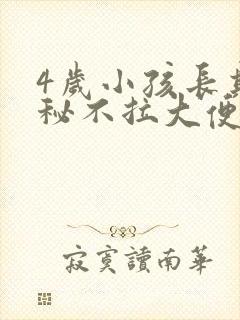 4歲小孩長
秘不拉大便
寂寞讀南華